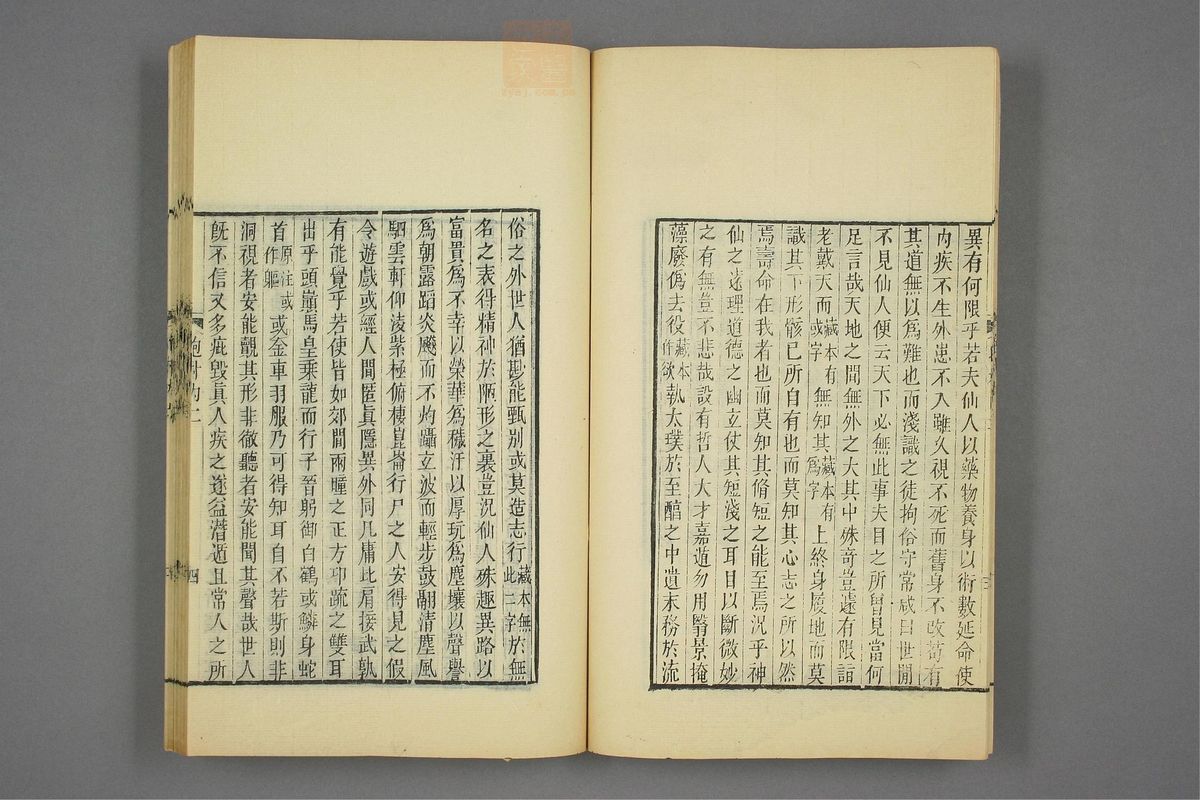 異有何限乎若夫仙人以藥物養身以術數延命使
内疾不生外患不入雖久視不死而舊身不改苟有
其道無以爲難也而淺識之徒拘俗守常咸曰世閒
不見仙人便云天下必無此事夫目之所曾見當何
足言哉天地之閒無外之大其中殊奇豈遽有限詣
老戴天而藏本有或字無知其藏本有爲字上終身履地而莫
識其下形骸已所自有也而莫知其心志之所以然
焉壽命在我者也而莫知其脩短之能至焉況乎神
仙之遠理道德之幽玄仗其短淺之耳目以斷微妙
之有無豈不悲哉設有哲人大才嘉遁勿用翳景掩
藻廢僞去役藏本作欲執太璞於至醇之中遺末務於流
俗之外世人猶尠能甄别或莫造志行藏本無此二字於無
名之表得精神於陋形之裏豈況仙人殊趣異路以
富貴爲不幸以榮華爲穢汙以厚玩爲塵壤以聲譽
爲朝露蹈炎飈而不灼躡玄波而輕步鼓翮清塵風
駟雲軒仰淩紫極俯棲崑崙行尸之人安得見之假
令遊戲或經人閒匿眞隱異外同凡庸比肩接武孰
有能覺乎若使皆如郊閒兩瞳之正方邛疏之雙耳
出乎頭巔馬皇乘龍而行子晉躬御白鶴或鱗身蛇
首原注或作軀或金車羽服乃可得知耳自不若斯則非
洞視者安能覿其形非徹聽者安能聞其聲哉世人
旣不信又多疵毀眞人疾之遂益潛遁且常人之所
抱朴内二
四